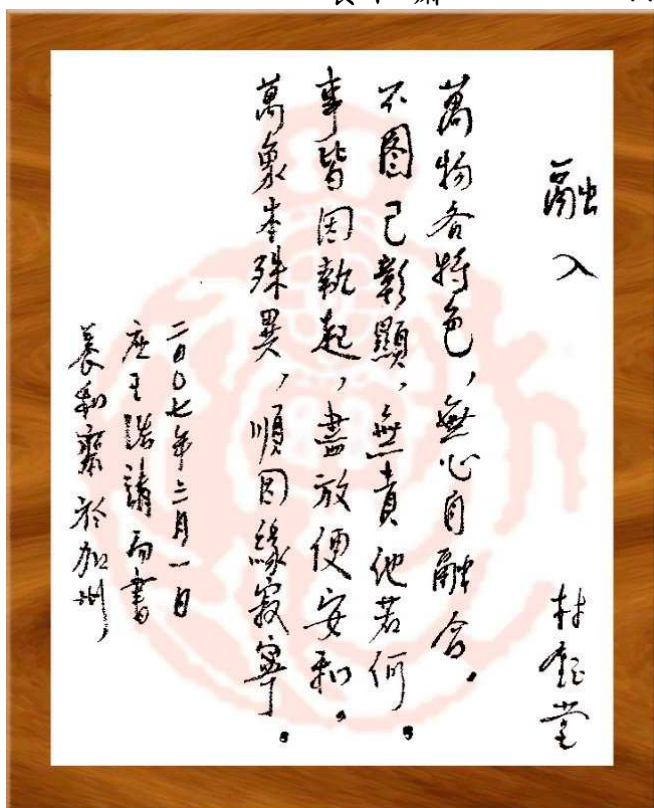 融入 林鈺堂
萬物各特色，無心自融合。
不圖己彰顯，無責他若何。
事皆因執起，盡放便安和。
萬象本殊異，順因緣寂寧。
二〇〇七年三月一日
應王請而書
養和齋於加州